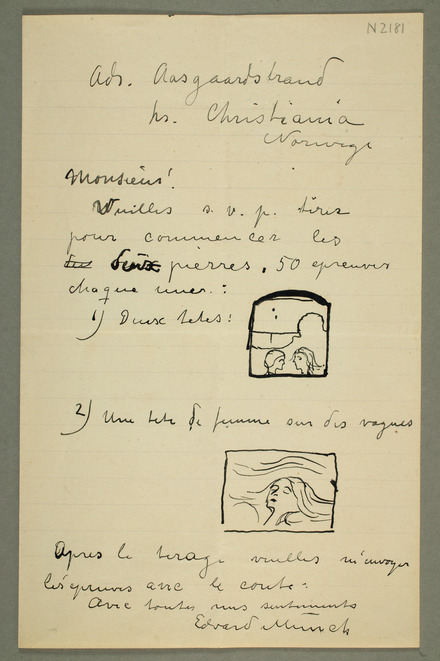 N2181
Ads. Aasgaardstrand
pr. Christiania
Norvege
Monsieur!
Vuilles s. v. p. tirer
pour commencer les
deux pierres, 50 epreuves
chaque unes:
1) Deux tetes:
2) Une tete de femme sur des vagues
Apres le tirage vuilles m'envoyer
les epreuves avec le conte:
Avec toutes mes sentiments
Edvard Munch